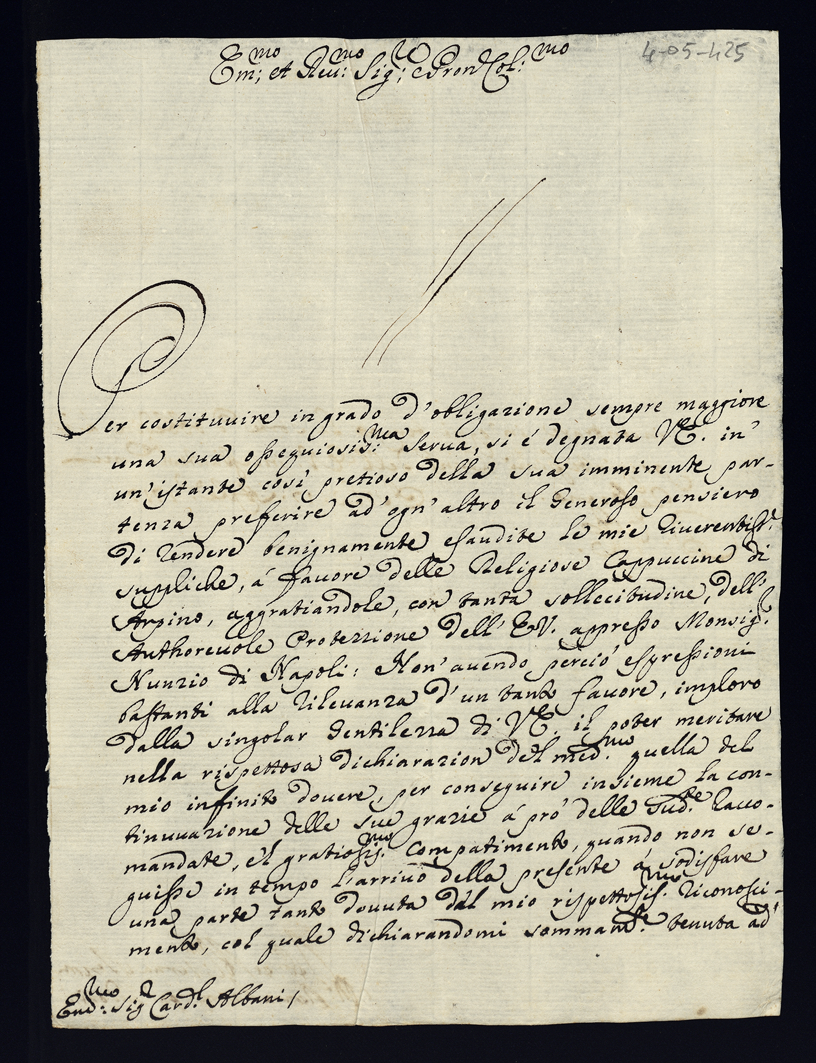 4-05-425
Em:mo et Reu:mo Sig:re e Pron Col:mo
Per costituuire in grado d'obligazione sempre maggiore
una sua ossequiosis:ma serua, si é degnata VE. in'
un'istante così pretioso della sua imminente par-
tenza preferire ad'ogn'altro il Generoso pensiero
di rendere benignamente esaudite le mie riuerentiss:e
suppliche, á fauore delle Religiose Cappuccine di
Arpino, aggratiandole, con tanta sollecitudine, dell'
Authoreuole Protezzione dell'EV. appresso Monsig:r
Nunzio di Napoli: Non'auendo perció espressioni
bastanti alla rileuanza d'un tanto fauore, imploro
dalla singolar Gentilezza di VE. il poter meritare
nella rispettosa dichiarazion del med:mo quella del
mio infinito douere, per conseguire insieme la con-
tinuuazione delle sue grazie á pró delle Sud:te Racco-
mandate, e'l gratiosis:mo compatimento, quando non se-
guisse in tempo l'arriuo della presente á sodisfare
una parte tanto douuta dal mio rispettosis:mo riconosci-
mento, col quale dichiarandomi sommam:te tenuta ad'
Em:mo Sig:r Card:l Albani /